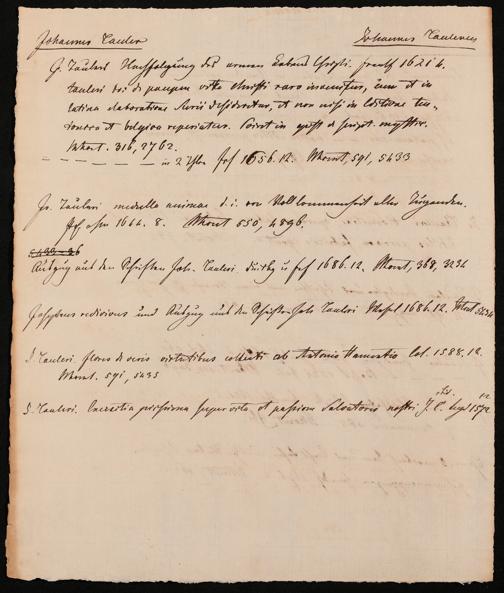 Johannes Tauler Johannes Taulerus
J. Tauleri Nachfolgung des armen Lebens Christi. Frankf 1621 4.
Tauleri de paupere vita Christi raro invenitur, cum et in
latina elaboratione Surii desideretur, et non nisi in Editione teu-
tonica et belgica reperiatur. Poiret in epist. de script. mystic.
Morst. 316, 2762.
— — — — — — in 2 Thln frf 1656. 12. Morst, 591, 5433
Jo. Tauleri medulla animae d. i. von Vollkommenheit aller Tugenden.
frf a/m 1644. 8. Morst 550, 4896.
5433-36
Auszug aus den Schriften Joh. Tauleri u frf 1686. 12. Morst, 368, 3234
Josephus redivivus und Auszug aus den Schriften Joh Tauleri 1686. 12. Morst 3234
D. Tauleri flores de veris virtutibus collecti ab Antonio Col. 1588. 12.
Morst. 591, 5435
D. Tauleri. Exercitia piissima super vita et passione Salvatoris nostri J. C. Lugd 1572
12